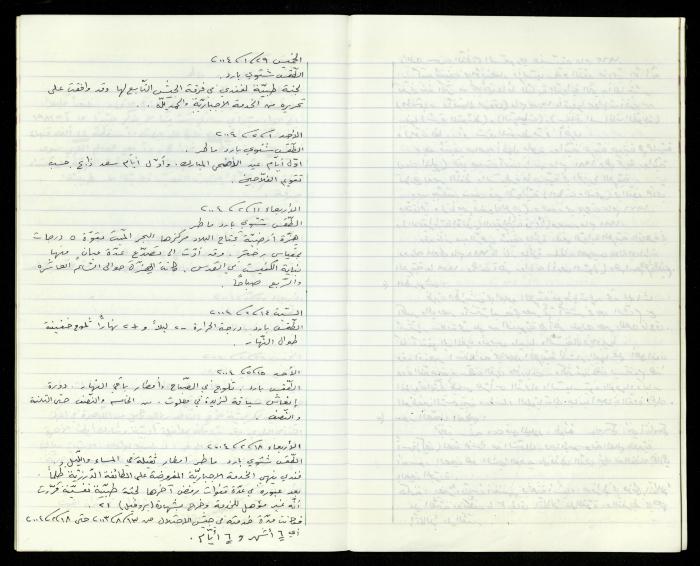 الخميس ٢٩/١/٢٠٠٤
الطّقس شتوي بارد.
لجنة طبيّة لفندي في فرقة الجيش التّابع لها وقد وافقت على
تحريره من الخدمة الاجباريّة والحمد للّه.
الأحد ١/٢/٢٠٠٤
الطّقس شتوي بارد ماطر.
اوّل أيّام عيد الأضحى المبارك. وأوّل أيّام سعد ذابح حسب
تقويم الفلّاحين.
الأربعاء ١١/٢/٢٠٠٤
الطّقس شتوي بارد ماطر
هزّة أرضيّة تجتاح البلاد مركزها البحر الميّت بقوّة ٥ درجات
بمقياس ريختر. وقد أدّت الى تصدّع عدّة مبان منها
بناية الكنيست في القدس. كانت الهزّة حوالي السّاعة العاشرة
والرّبع صباحًا.
السبت ١٤/٢/٢٠٠٤
الطّقس بارد. درجة الحرارة -٢ ليلًا و +٢ نهارًا ثلوج خفيفة
طوال النّهار.
الأحد ١٥/٢/٢٠٠٤
الطّقس بارد. ثلوج في الصّباح وأمطار باقي النّهار. دورة
إنعاش سياقة لزبيدة في معلوت. من الخامسة والنّصف حتى الثامنة
والنّصف.
الأربعاء ١٨/٢/٢٠٠٤
الطّقس شتوي بارد ماطر امطار ثقيلة في المساء واللّيل
فندي ينهي الخدمة الاجباريّة المفروضة على الطائفة الدّرزيّة ظلمًا.
بعد عبوره في عدّة قنوات رفض آخرها لجنة طبيّة نفسيّة قرّرت
أنّه غير مؤهل للخدمة وخرج بشهادة (بروفيل) ٢١.
فكانت مدّة خدمته في جيش الاحتلال من ١٣/٨/٢٠٠٣ حتى ١٨/٢/٢٠٠٤
أي ٦ أشهر و ٦ أيّام.